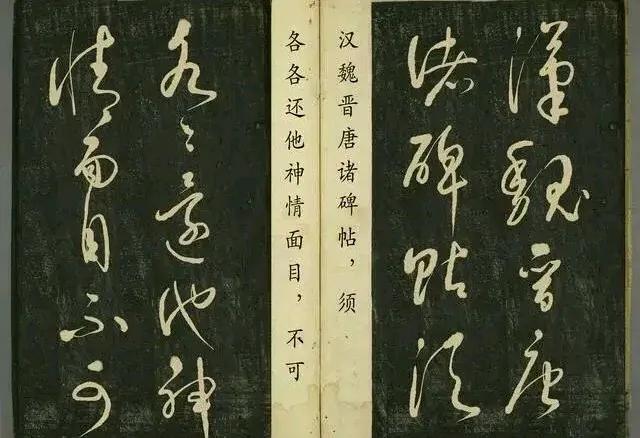 漢魏晉唐
諸碑帖須
汉魏晋唐诸碑帖，须
各各还他神情面目，不可
各々還他神
情面目不可